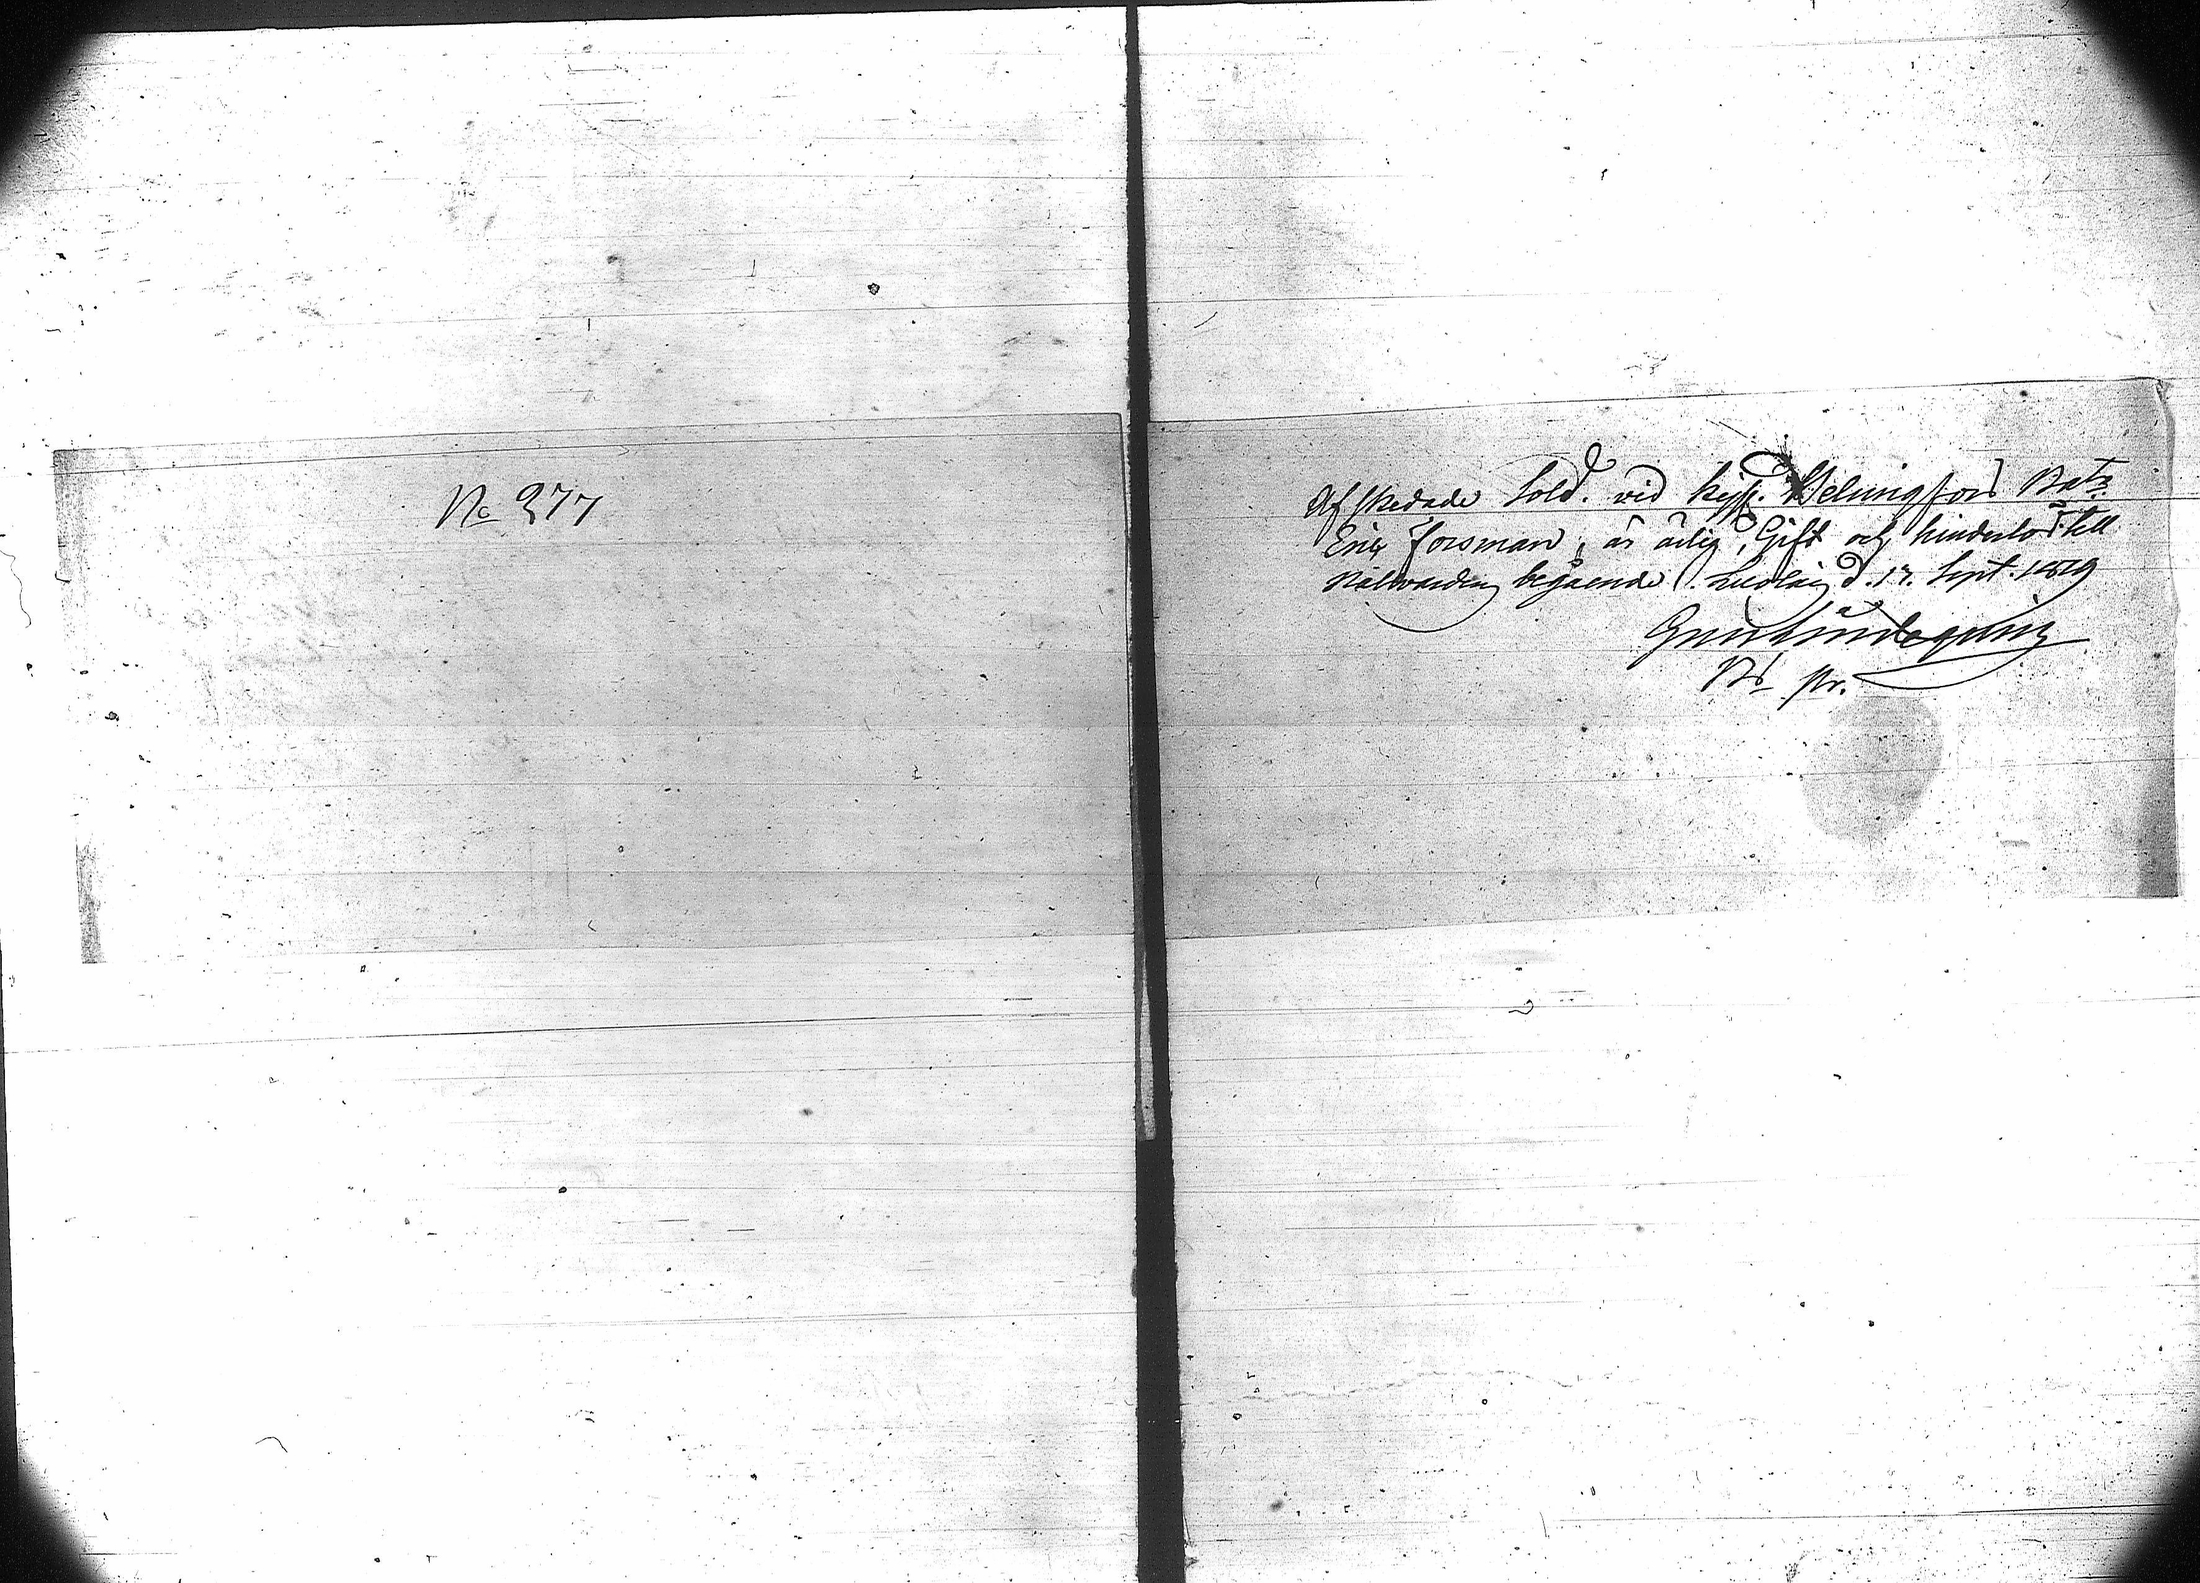 No 277
Afskedade Sold. vid Kejs. Helsingfors Bat:
Eric Forsman, är ärlig, Gift och hinderlös till
Nattvarden begående. d. 17. Sept. 1829
pr.